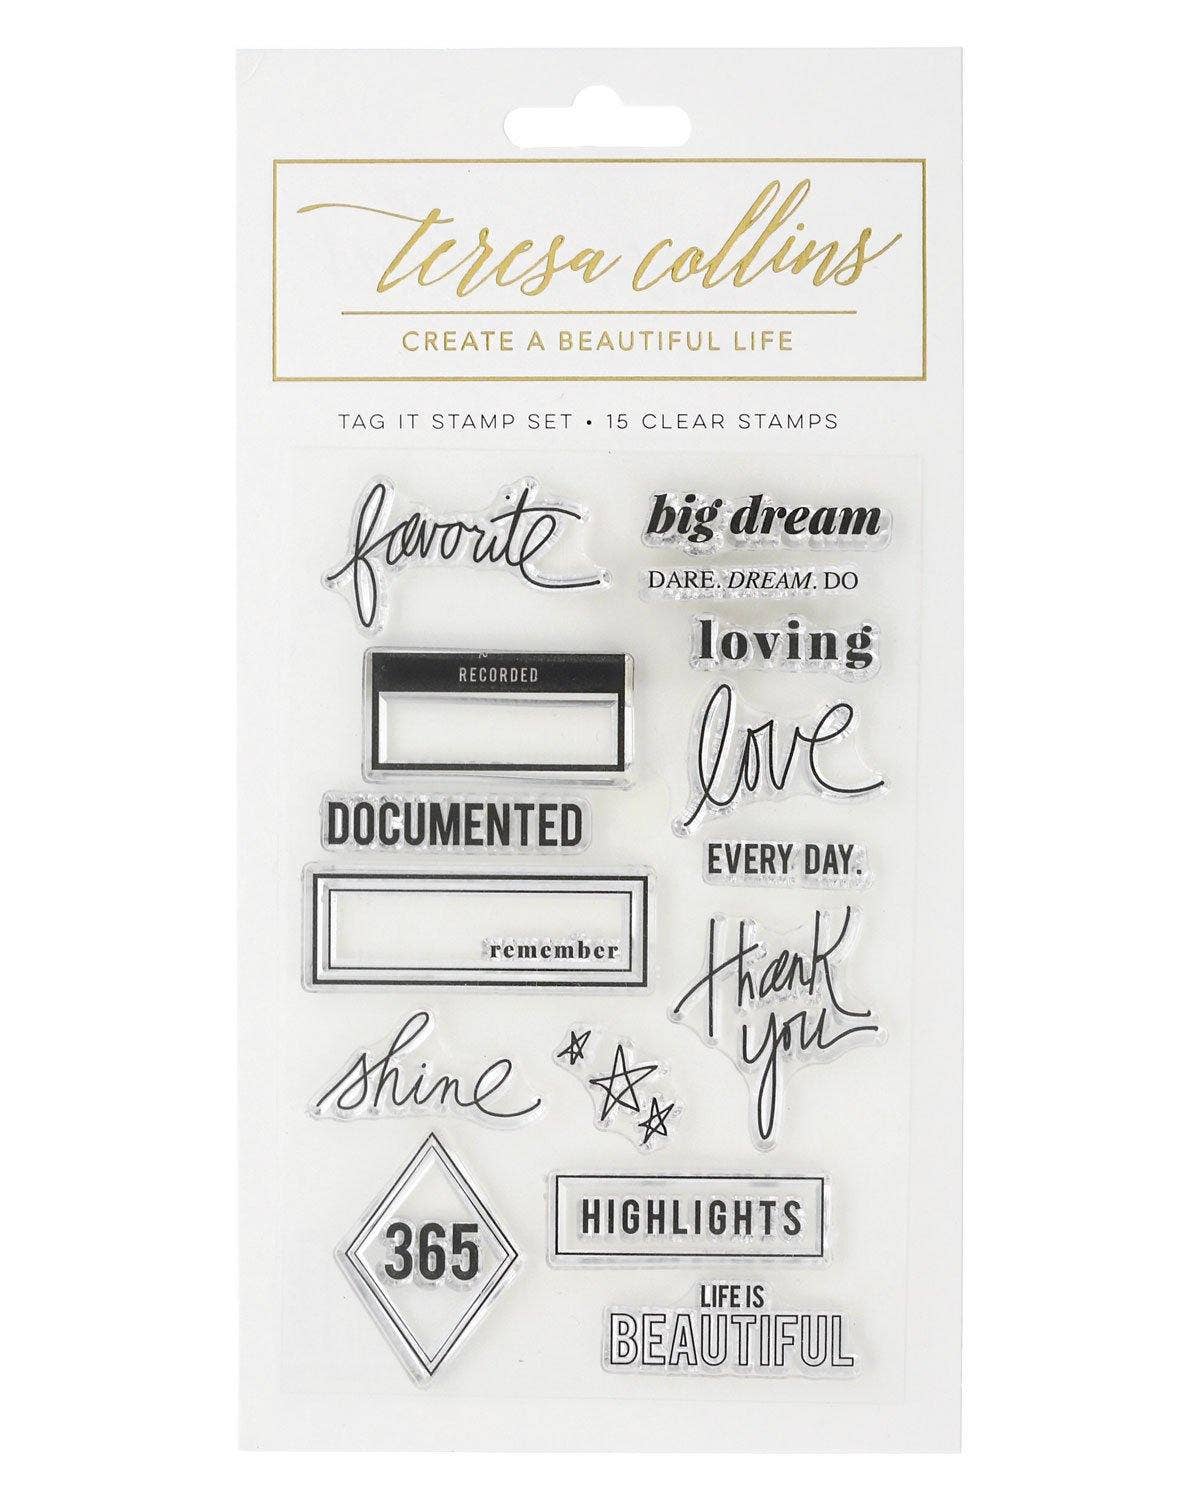 teresa collins
CREATE A BEAUTIFUL LIFE
TAG IT STAMP SET • 15 CLEAR STAMPS
favorite
big dream
DARE. DREAM. DO
loving
RECORDED
love
DOCUMENTED
EVERY DAY.
remember
thank
you
shine
365
HIGHLIGHTS
LIFE IS
BEAUTIFUL